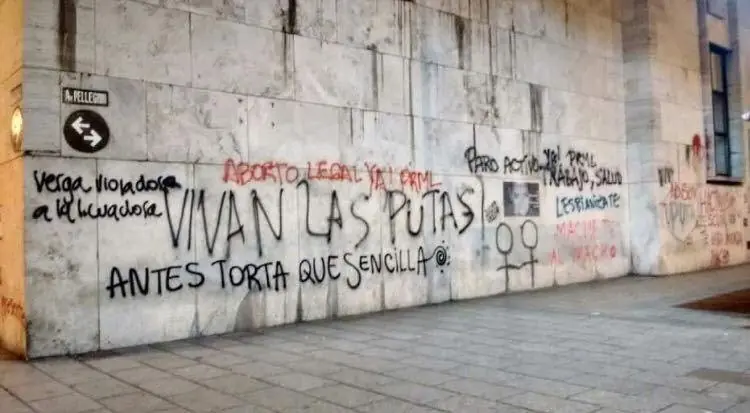 A. PELLEGRINI
Verga violadora
a la licuadora
ABORTO LEGAL YA! PRML
VIVAN LAS PUTAS
ANTES TORTA QUE SENCILLA
PARO ACTIVO YA! PRML
TRABAJO, SALUD
LESBIANIZATE
MACHETE
AL MACHO